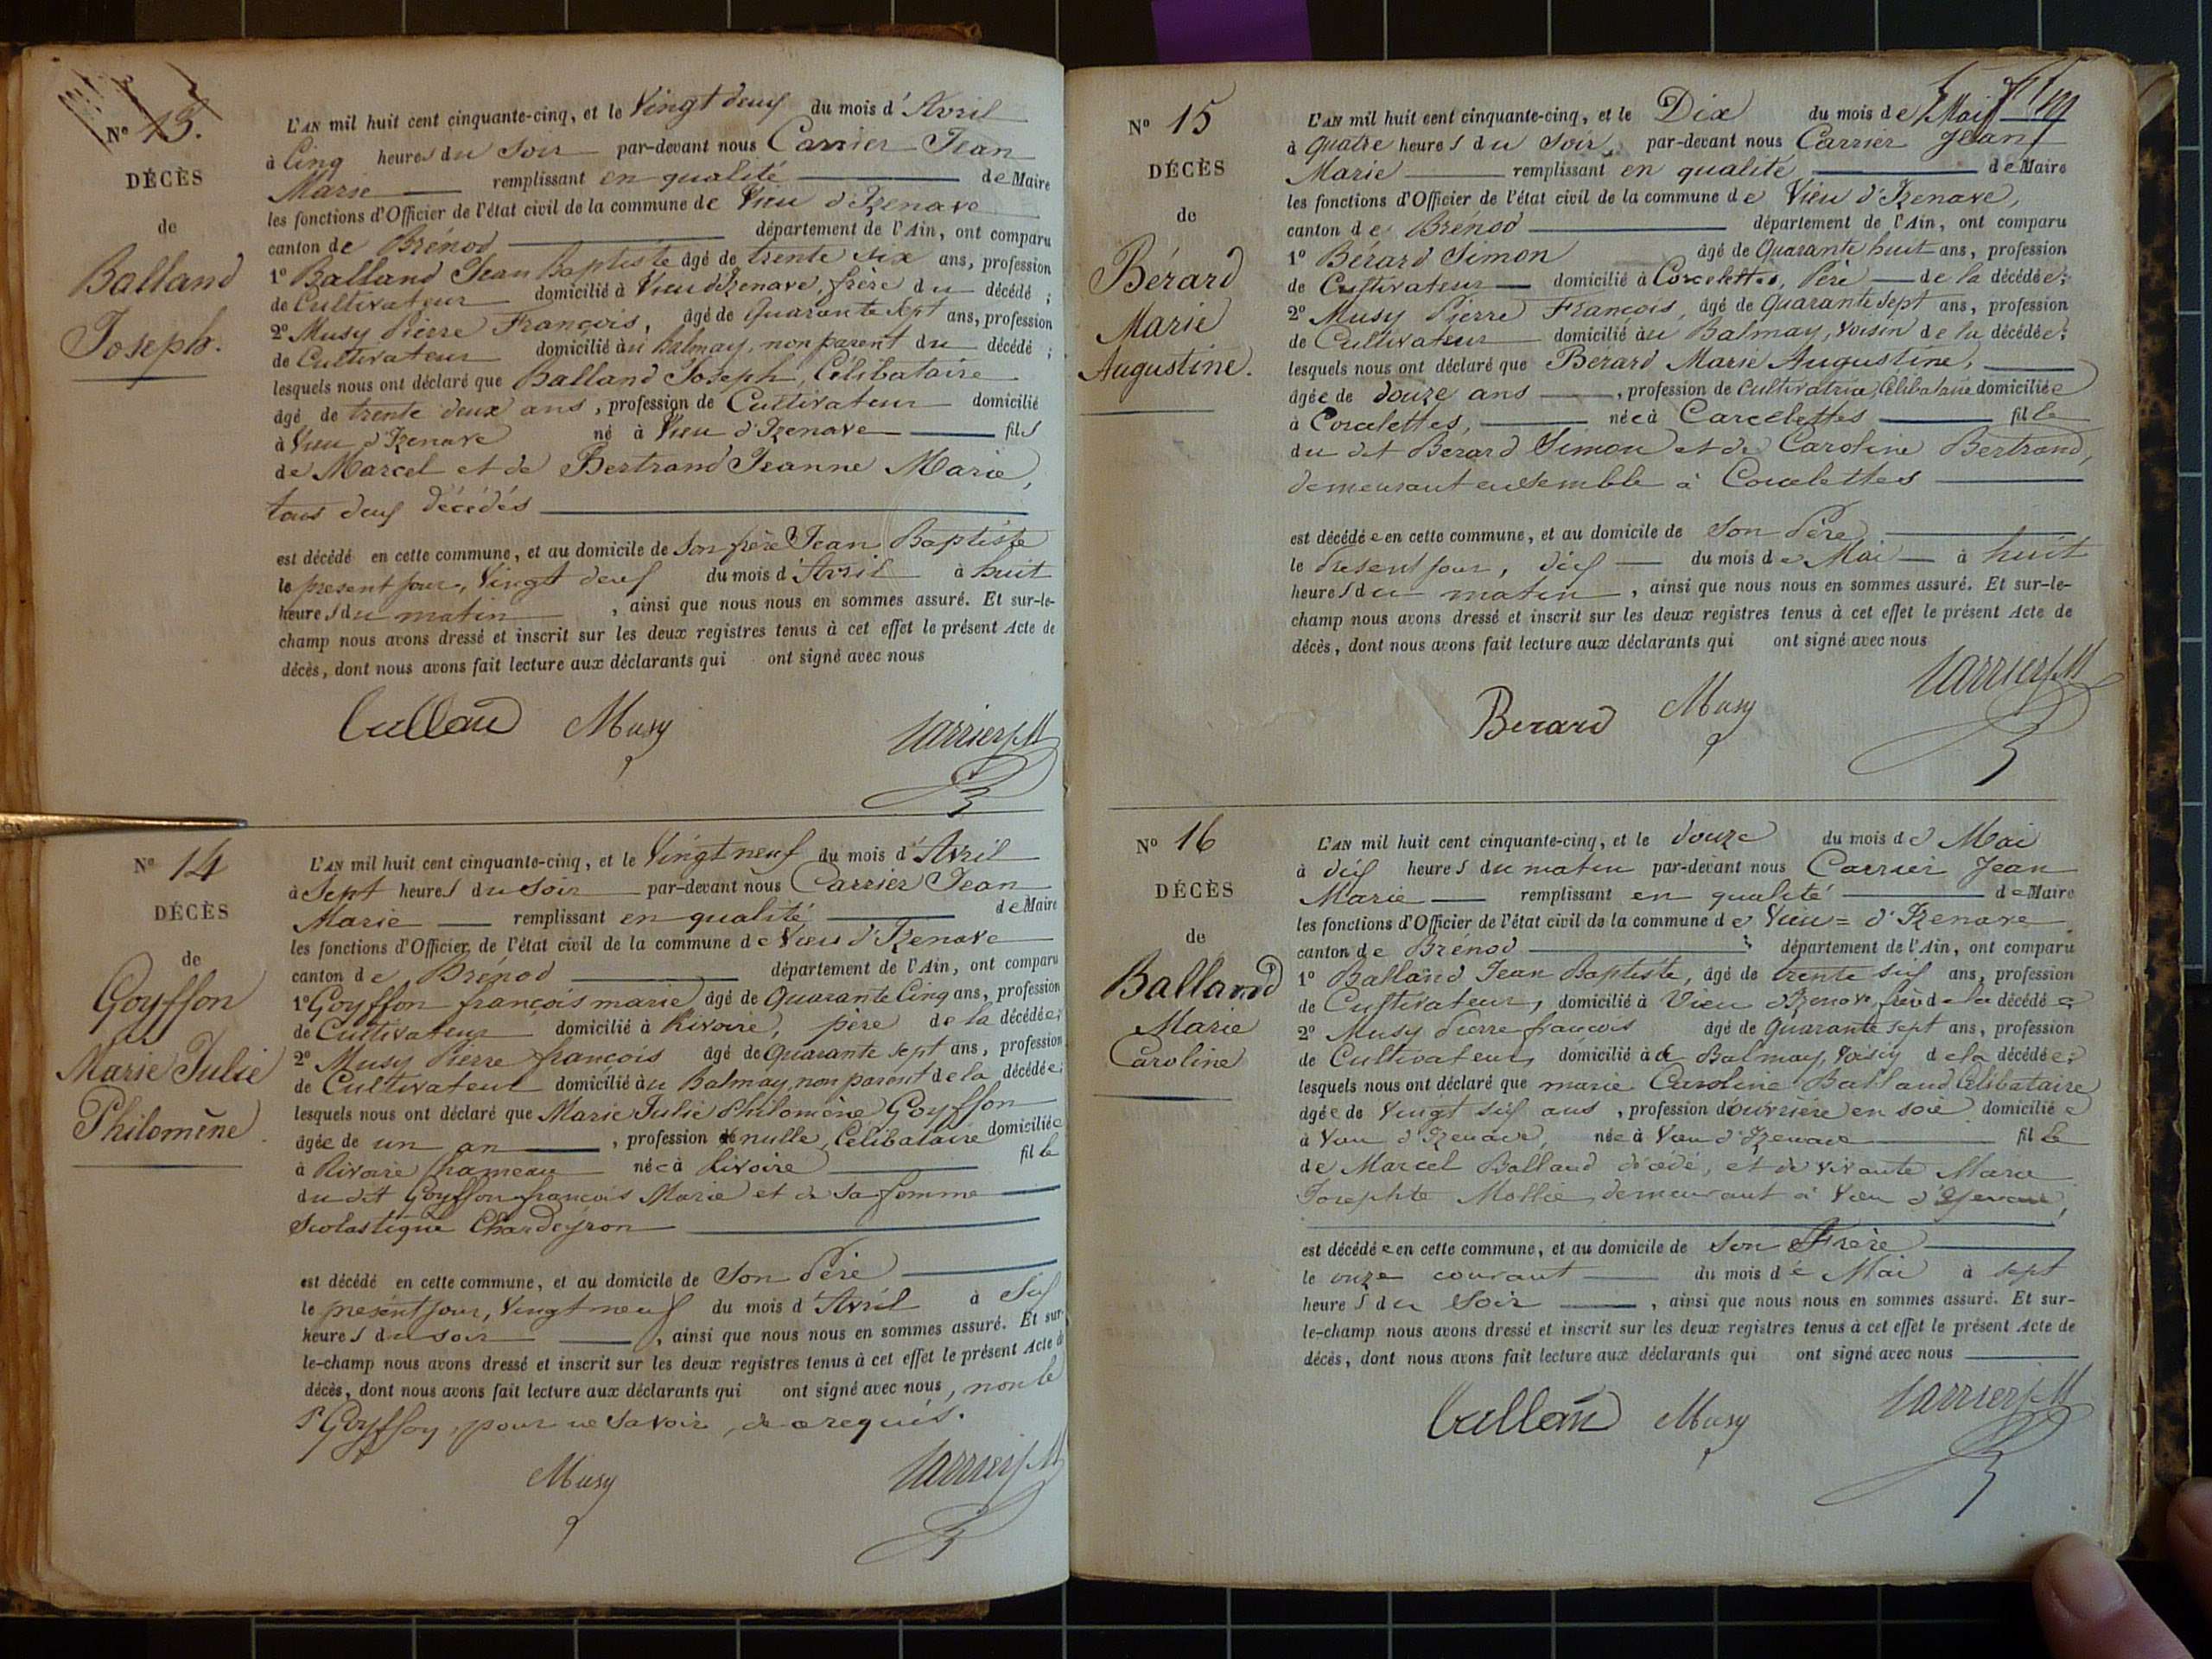 Nº 13.
DÉCÈS
de
Balland
Joseph.
L'AN mil huit cent cinquante-cinq, et le Vingt deux du mois d'Avril
à Cinq heures du Soir par-devant nous Carrier Jean
Marie remplissant en qualité de Maire
les fonctions d'Officier de l'état civil de la commune de Vieu d'Izenave
canton de Brénod département de l'Ain, ont comparu
1º Balland Jean Baptiste âgé de trente six ans, profession
de Cultivateur domicilié à Vieu d'Izenave, frère du décédé ;
2º Musy Pierre François, âgé de Quarante Sept ans, profession
de Cultivateur domicilié au Balmay, non parent du décédé ;
lesquels nous ont déclaré que Balland Joseph, Célibataire
âgé de trente deux ans, profession de Cultivateur domicilié
à Vieu d'Izenave né à Vieu d'Izenave fils
de Marcel et de Bertrand Jeanne Marie,
tous deux décédés
est décédé en cette commune, et au domicile de Son frère Jean Baptiste
le présent jour, Vingt deux du mois d'Avril à huit
heures du matin, ainsi que nous nous en sommes assuré. Et sur-le-
champ nous avons dressé et inscrit sur les deux registres tenus à cet effet le présent Acte de
décès, dont nous avons fait lecture aux déclarants qui ont signé avec nous
Musy Carrier J M
Nº 14
DÉCÈS
de
Goyffon
Marie Julie
Philomène
L'AN mil huit cent cinquante-cinq, et le Vingt neuf du mois d'Avril
à Sept heures du Soir par-devant nous Carrier Jean
Marie remplissant en qualité de Maire
les fonctions d'Officier de l'état civil de la commune de Vieu d'Izenave
canton de Brénod département de l'Ain, ont comparu
1º Goyffon françois marie âgé de Quarante Cinq ans, profession
de Cultivateur domicilié à Rivoire, père de la décédée;
2º Musy Pierre françois âgé de Quarante sept ans, profession
de Cultivateur domicilié au Balmay, non parent de la décédée;
lesquels nous ont déclaré que Marie Julie Philomène Goyffon
âgée de un an, profession nulle, Célibataire domiciliée
à Rivoire hameau née à Rivoire fille
du dit Goyffon françois Marie et de Sa femme
Scolastique Chardeyron
est décédé en cette commune, et au domicile de Son Père
le présent jour, Vingt neuf du mois d'Avril à Six
heures du soir, ainsi que nous nous en sommes assuré. Et sur-
le-champ nous avons dressé et inscrit sur les deux registres tenus à cet effet le présent Acte de
décès, dont nous avons fait lecture aux déclarants qui ont signé avec nous, non le
Sr Goyffon, pour ne savoir, de ce requis.
Musy Carrier J M
Nº 15
DÉCÈS
de
Bérard
Marie
Augustine.
L'AN mil huit cent cinquante-cinq, et le Dix du mois de Mai
à quatre heures du Soir, par-devant nous Carrier Jean
Marie remplissant en qualité de Maire
les fonctions d'Officier de l'état civil de la commune de Vieu d'Izenave,
canton de Brénod département de l'Ain, ont comparu
1º Bérard Simon âgé de Quarante huit ans, profession
de Cultivateur domicilié à Corcelettes, Père de la décédée;
2º Musy Pierre François, âgé de Quarante sept ans, profession
de Cultivateur domicilié au Balmay, Voisin de la décédée;
lesquels nous ont déclaré que Berard Marie Augustine,
âgée de douze ans, profession de Cultivatrice, Célibataire domiciliée
à Corcelettes, née à Carcelettes fille
du dit Berard Simon et de Caroline Bertrand,
demeurant ensemble à Corcelettes
est décédée en cette commune, et au domicile de Son Père
le présent jour, dix du mois de Mai à huit
heures du matin, ainsi que nous nous en sommes assuré. Et sur-le-
champ nous avons dressé et inscrit sur les deux registres tenus à cet effet le présent Acte de
décès, dont nous avons fait lecture aux déclarants qui ont signé avec nous
Berard Musy Carrier J M
Nº 16
DÉCÈS
de
Balland
Marie
Caroline
L'AN mil huit cent cinquante-cinq, et le douze du mois de Mai
à dix heures du matin par-devant nous Carrier Jean
Marie remplissant en qualité de Maire
les fonctions d'Officier de l'état civil de la commune de Vieu = d'Izenave
canton de Brénod département de l'Ain, ont comparu
1º Balland Jean Baptiste, âgé de trente six ans, profession
de Cultivateur, domicilié à Vieu d'Izenave, frère de la décédée
2º Musy Pierre françois âgé de Quarante sept ans, profession
de Cultivateur, domicilié à Balmay, Voisin de la décédée;
lesquels nous ont déclaré que marie Caroline Balland Célibataire
âgée de Vingt six ans, profession d'ouvrière en soie domiciliée
à Vieu d'Izenave, née à Vieu d'Izenave fille
de Marcel Balland décédé, et de vivante Marie
Josephte Mollie, demeurant à Vieu d'Izenave,
est décédée en cette commune, et au domicile de Son Frère
le onze courant du mois de Mai à sept
heures du Soir, ainsi que nous nous en sommes assuré. Et sur-
le-champ nous avons dressé et inscrit sur les deux registres tenus à cet effet le présent Acte de
décès, dont nous avons fait lecture aux déclarants qui ont signé avec nous
Musy Carrier J M